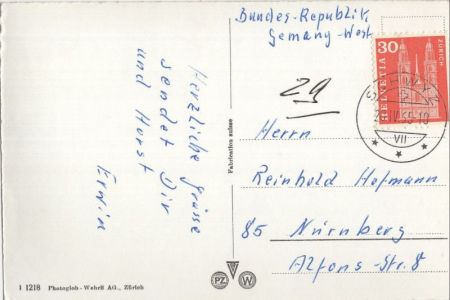 Bundes-Republik
Gemany-West
30
ZÜRICH
HELVETIA
VII
29
Herrn
Reinhold Hofmann
85 Nürnberg
Alfons-Str. 8
Herzliche Grüsse
sendet Dir
und Horst
Erwin
Fabrication suisse
1 1218 Photoglob-Wehrli AG., Zürich
PZ W